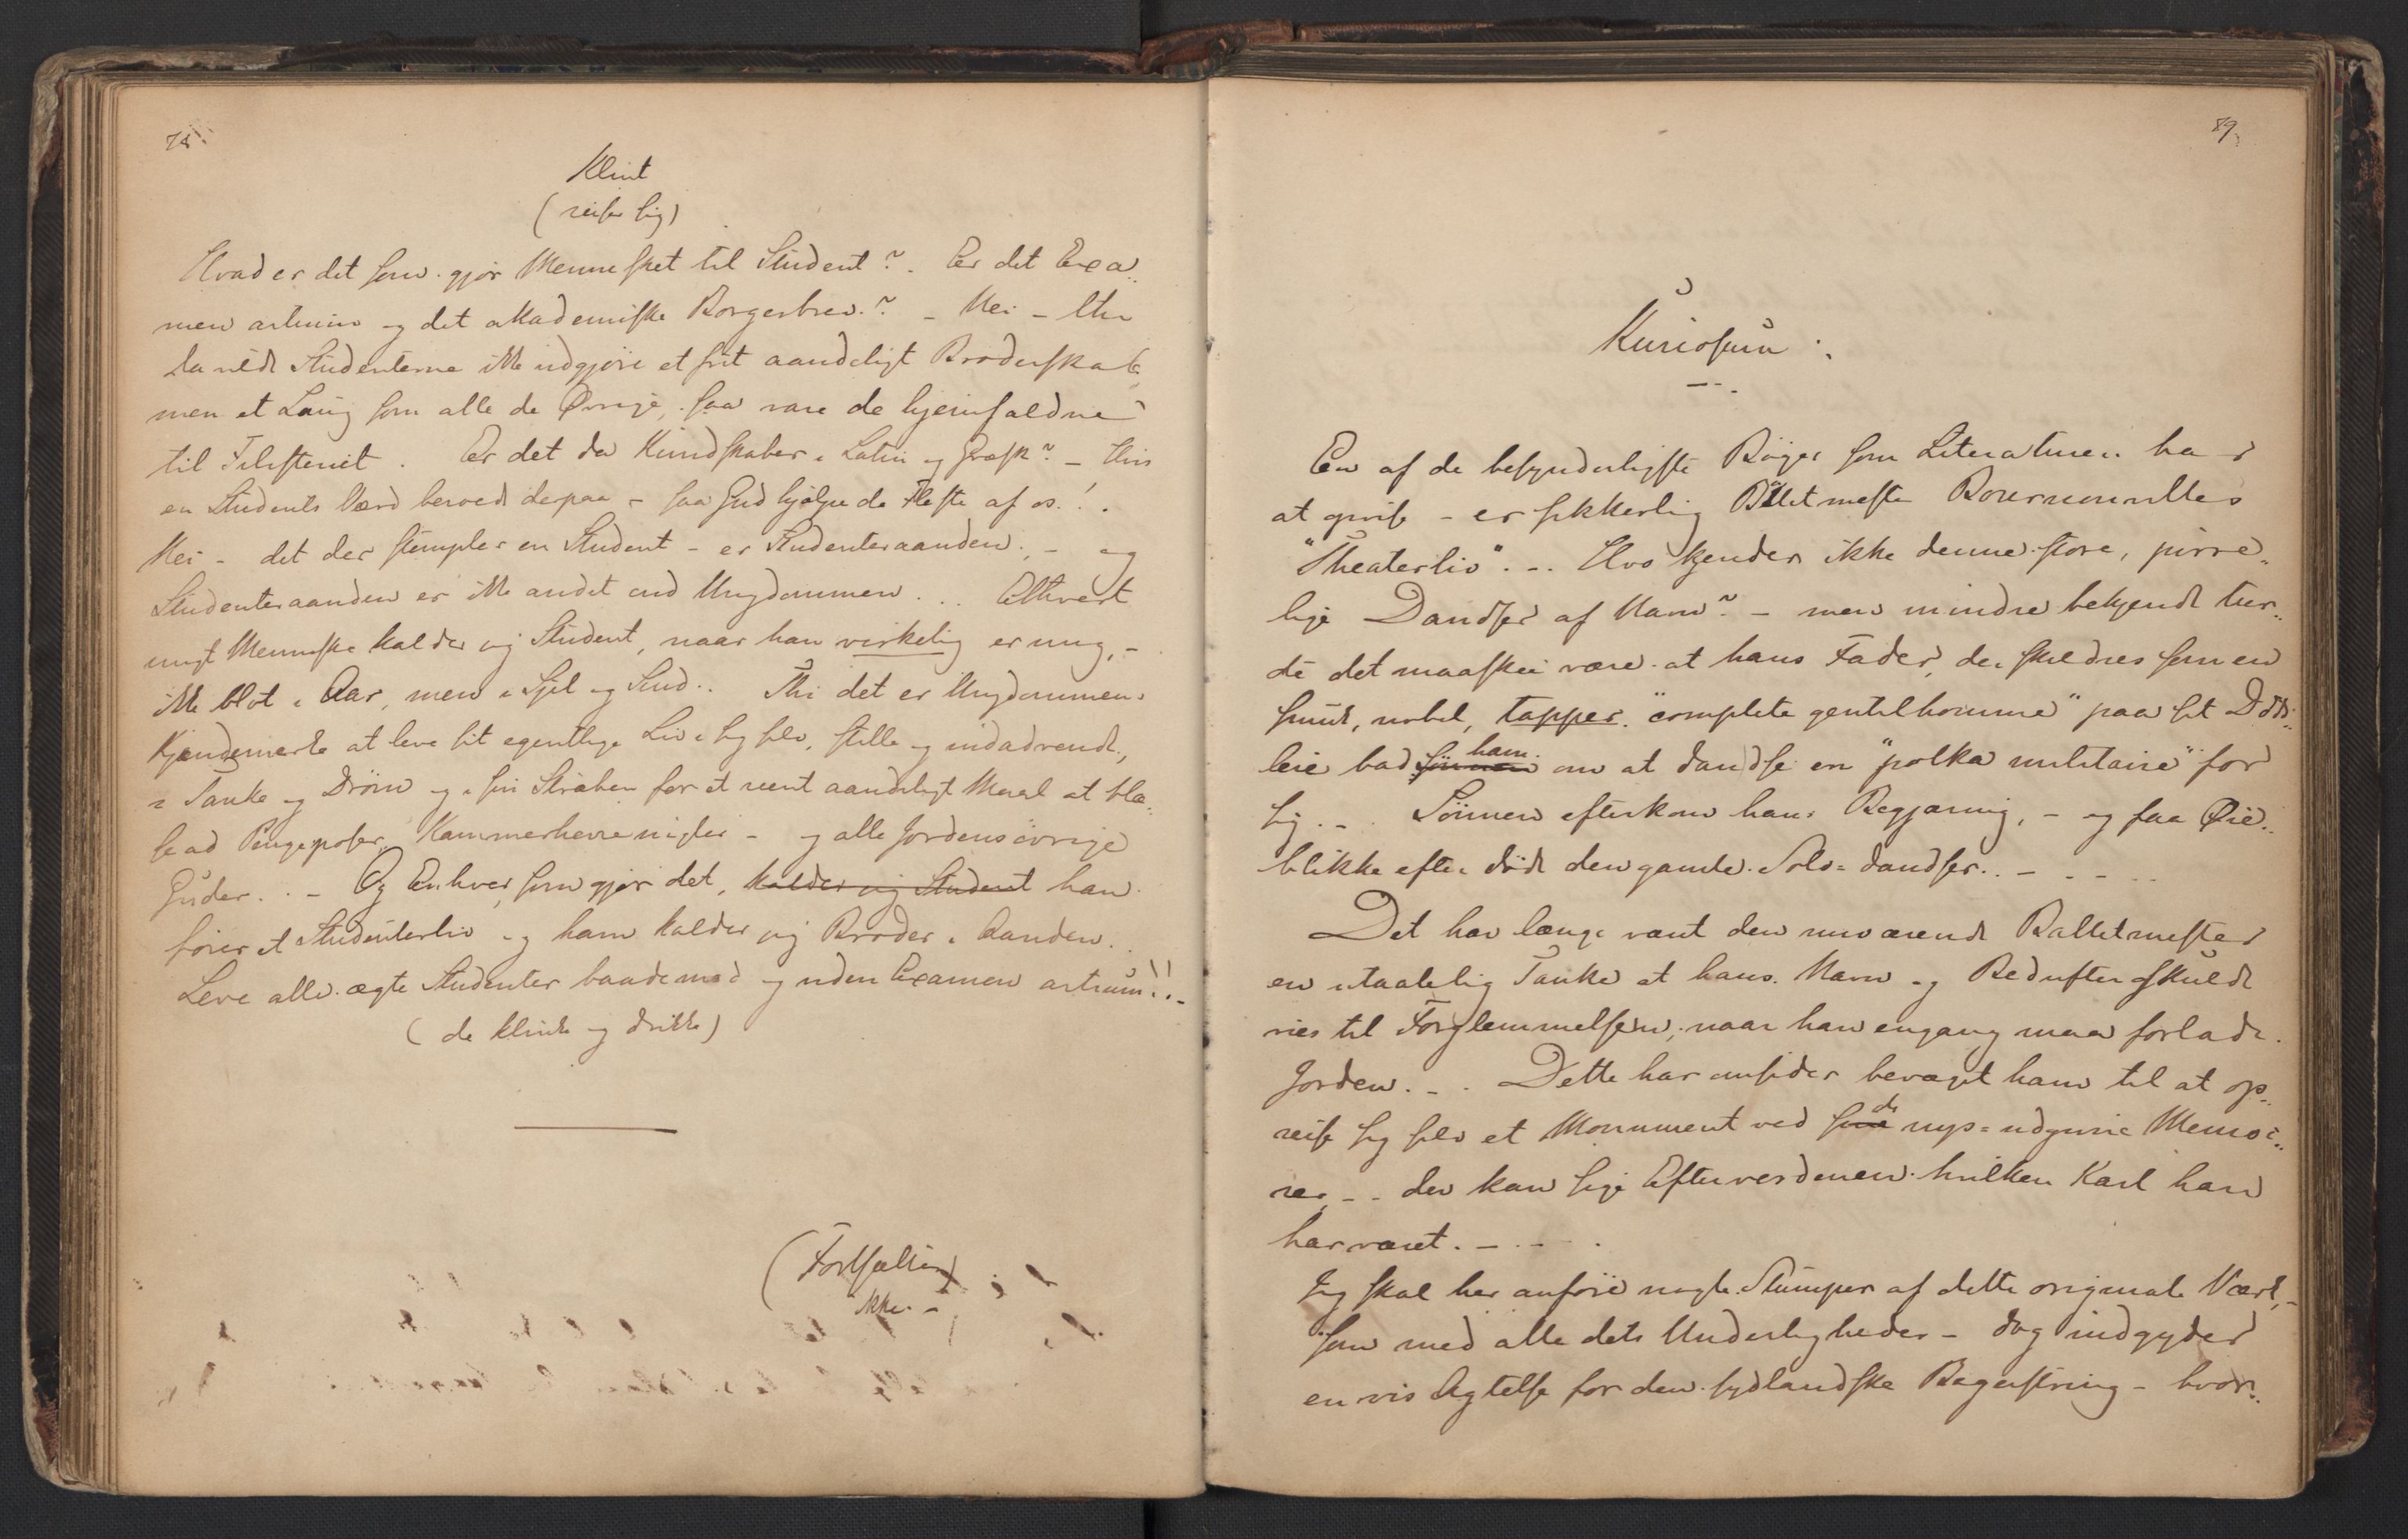 78.
Klint
(reiser sig)
Hvad er det som gjør Mennesket til Student? Er det Exa-
men artium og det akademiske Borgerbrev? – Nei –
Studenterne ikke udgjøre et frit aandeligt Broderskab,
men et Laug som alle de Øvrige, saa vare de hjemfaldne
til Filisteriet. Er det da Kundskaber i Latin og Græsk? – Hvis
en Students Værd beroede derpaa – saa Gud hjælpe de Fleste af os!.
Nei – det der stempler en Student – er Studenteraanden, – og
Studenteraanden er ikke andet end Ungdommen... Ethvert
ungt Menneske kalder jeg Student, naar han virkelig er ung, –
ikke blot i Aar, men i Sjel og Sind.. Thi det er Ungdommens
Kjendemerke at leve sit egentlige Liv i sig selv, stille og indadvendt,
i Tanke og Drøm og i sin Stræben for et reent aandeligt Maal at blæ-
se ad Pengeposer, Kammerherrenøgler – og alle Jordens øvrige
Guder... – Og Enhver, som gjør det, kalder jeg Student han
fører et Studenterliv og ham kalder jeg Broder i Aanden..
Leve alle ægte Studenter baade med og uden Examen artium!! –
(de klinke og drikke)
(Fortsættes
ikke. –
89.
Kuriosum.
En af de besynderligste Bøger som Literaturen har
at opvise – er sikkerlig Balletmester Bournonvilles
"Theaterliv". – Hvo kjender ikke denne store, pirre-
lige Dandser af Navn? – men mindre bekjendt tur-
de det maaskee være at hans Fader, der skildres som en
smuk, nobel, tapper "complete gentilhomme" paa sit Døds-
leie bad Sønnen ham om at dandse en "polka militaire" for
sig. – . Sønnen efterkom hans Begjæring, – og faa Øie-
blikke efter døde den gamle Solo-dandser.. – . – . .
Det har længe været den nuværende Balletmester
en utaalelig Tanke at hans Navn og Bedrifter skulde
vies til Forglemmelsen, naar han engang maa forlade
Jorden. – . Dette har omsider bevæget ham til at op-
reise sig selv et Monument ved sine de nys-udgivne Memoi-
rer, – . der kan sige Efterverdenen hvilken Karl han
har været. – . – .
Jeg skal her anføre nogle Stumper af dette originale Værk, –
som med alle dets Underligheder – dog indgyder
en vis Agtelse for den sydlandske Begeistring – hvor-